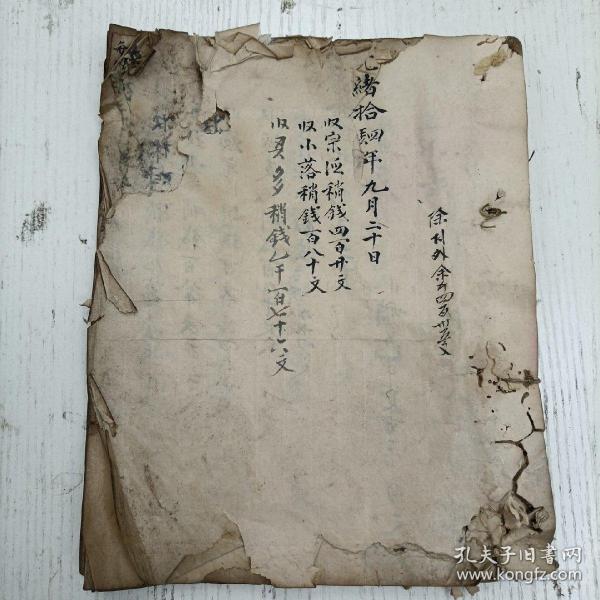 光緒拾四年九月二十日
收宗泗稍錢四百廿文
收小落稍錢一百八十文
收貝多稍錢乙千一百七十六文
除付外余
孔夫子旧书网
www.kongfz.com